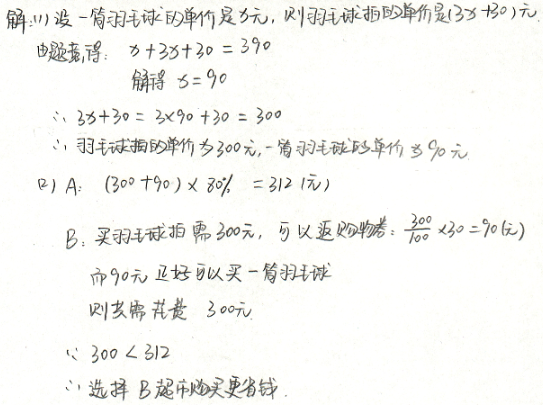 解:(1)设一筒羽毛球的单价是x元,则羽毛球拍的单价是(3x+30)元.
由题意,得: x+3x+30=390
解得 x=90
∴ 3x+30=3×90+30=300
∴ 羽毛球拍的单价为300元,一筒羽毛球的单价为90元.
(2) A: (300+90)×80% =312(元)
B: 买羽毛球拍需300元, 可以返购物券: 300/100×30=90(元)
而90元正好可以买一筒羽毛球
则共需花费 300元.
∵ 300<312
∴ 选择B超市购买更省钱.